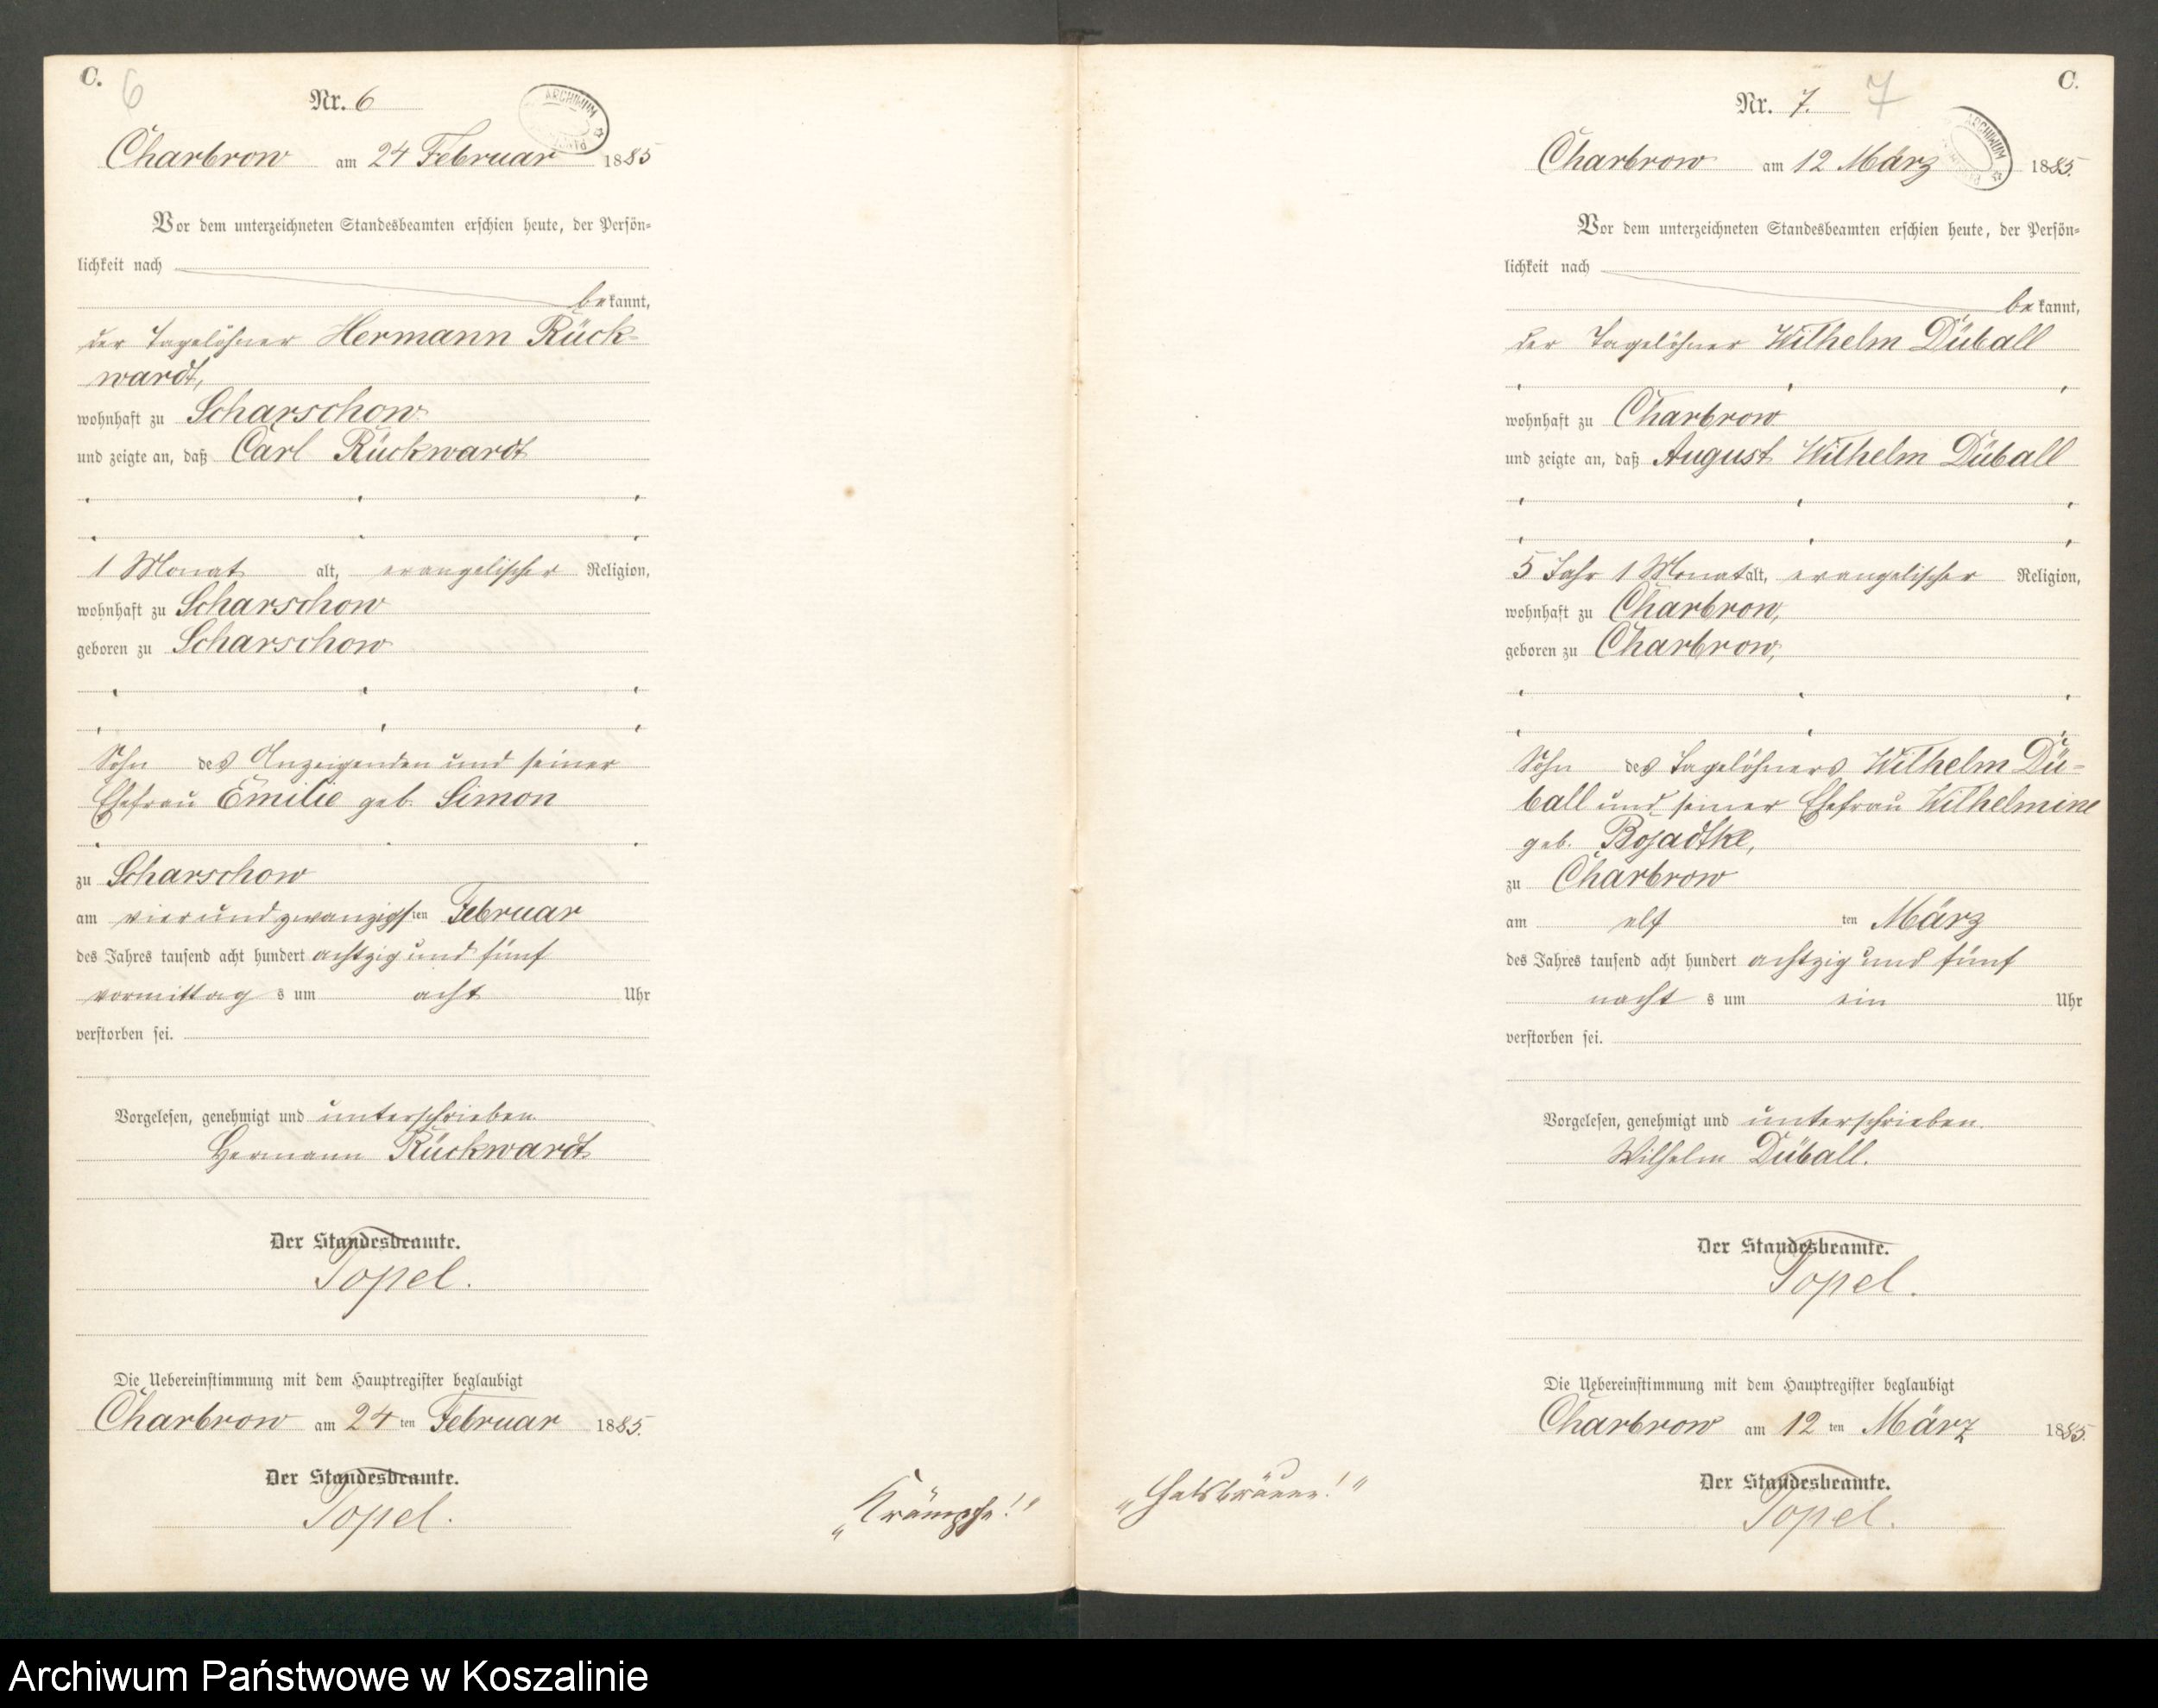 C.
6
Nr. 6
ARCHIWUM
Charbrow am 24 Februar 1885
Vor dem unterzeichneten Standesbeamten erschien heute, der Persön-
lichkeit nach
bekannt,
der Tagelöhner Hermann Rück-
wardt,
wohnhaft zu Scharschow
und zeigte an, daß Carl Rückwardt
1 Monat alt, evangelischer Religion,
wohnhaft zu Scharschow
geboren zu Scharschow
Sohn des Anzeigenden und seiner
Ehefrau Emilie geb. Simon
zu Scharschow
am vierundzwanzigsten Februar
des Jahres tausend acht hundert achtzig und fünf
vormittags um acht Uhr
verstorben sei.
Vorgelesen, genehmigt und unterschrieben
Hermann Rückwardt
Der Standesbeamte.
Topel.
Die Uebereinstimmung mit dem Hauptregister beglaubigt
Charbrow am 24ten Februar 1885.
Der Standesbeamte.
Topel.
„Krämpfe!"
C.
7
Nr. 7.
ARCHIWUM
Charbrow am 12 März 1885.
Vor dem unterzeichneten Standesbeamten erschien heute, der Persön-
lichkeit nach
bekannt,
der Tagelöhner Wilhelm Düball
wohnhaft zu Charbrow
und zeigte an, daß August Wilhelm Düball
5 Jahr 1 Monat alt, evangelischer Religion,
wohnhaft zu Charbrow,
geboren zu Charbrow,
Sohn des Tagelöhners Wilhelm Dü-
ball und seiner Ehefrau Wilhelmine
geb.
zu Charbrow
am elf ten März
des Jahres tausend acht hundert achtzig und fünf
nachts um ein Uhr
verstorben sei.
Vorgelesen, genehmigt und unterschrieben.
Wilhelm Düball.
Der Standesbeamte.
Topel.
Die Uebereinstimmung mit dem Hauptregister beglaubigt
Charbrow am 12ten März 1885.
Der Standesbeamte.
Topel.
„Halsbräune!"
Archiwum Państwowe w Koszalinie